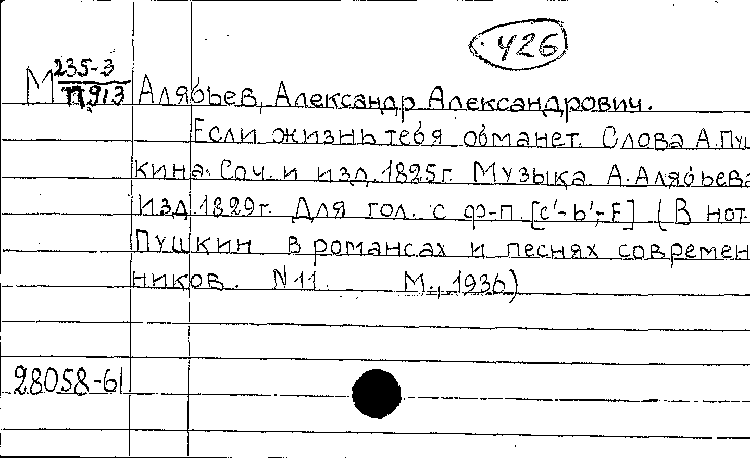 426
М 235-3
П913
Алябьев, Александр Александрович.
Если жизнь тебя обманет. Слова А.Пуш
кина. Соч. и изд. 1825г. Музыка А. Алябьева
изд. 1829г. Для гол. с ф-п. [c'-b'; F] (В нот.
Пушкин в романсах и песнях современ
ников. N 11. М., 1936)
28058-61